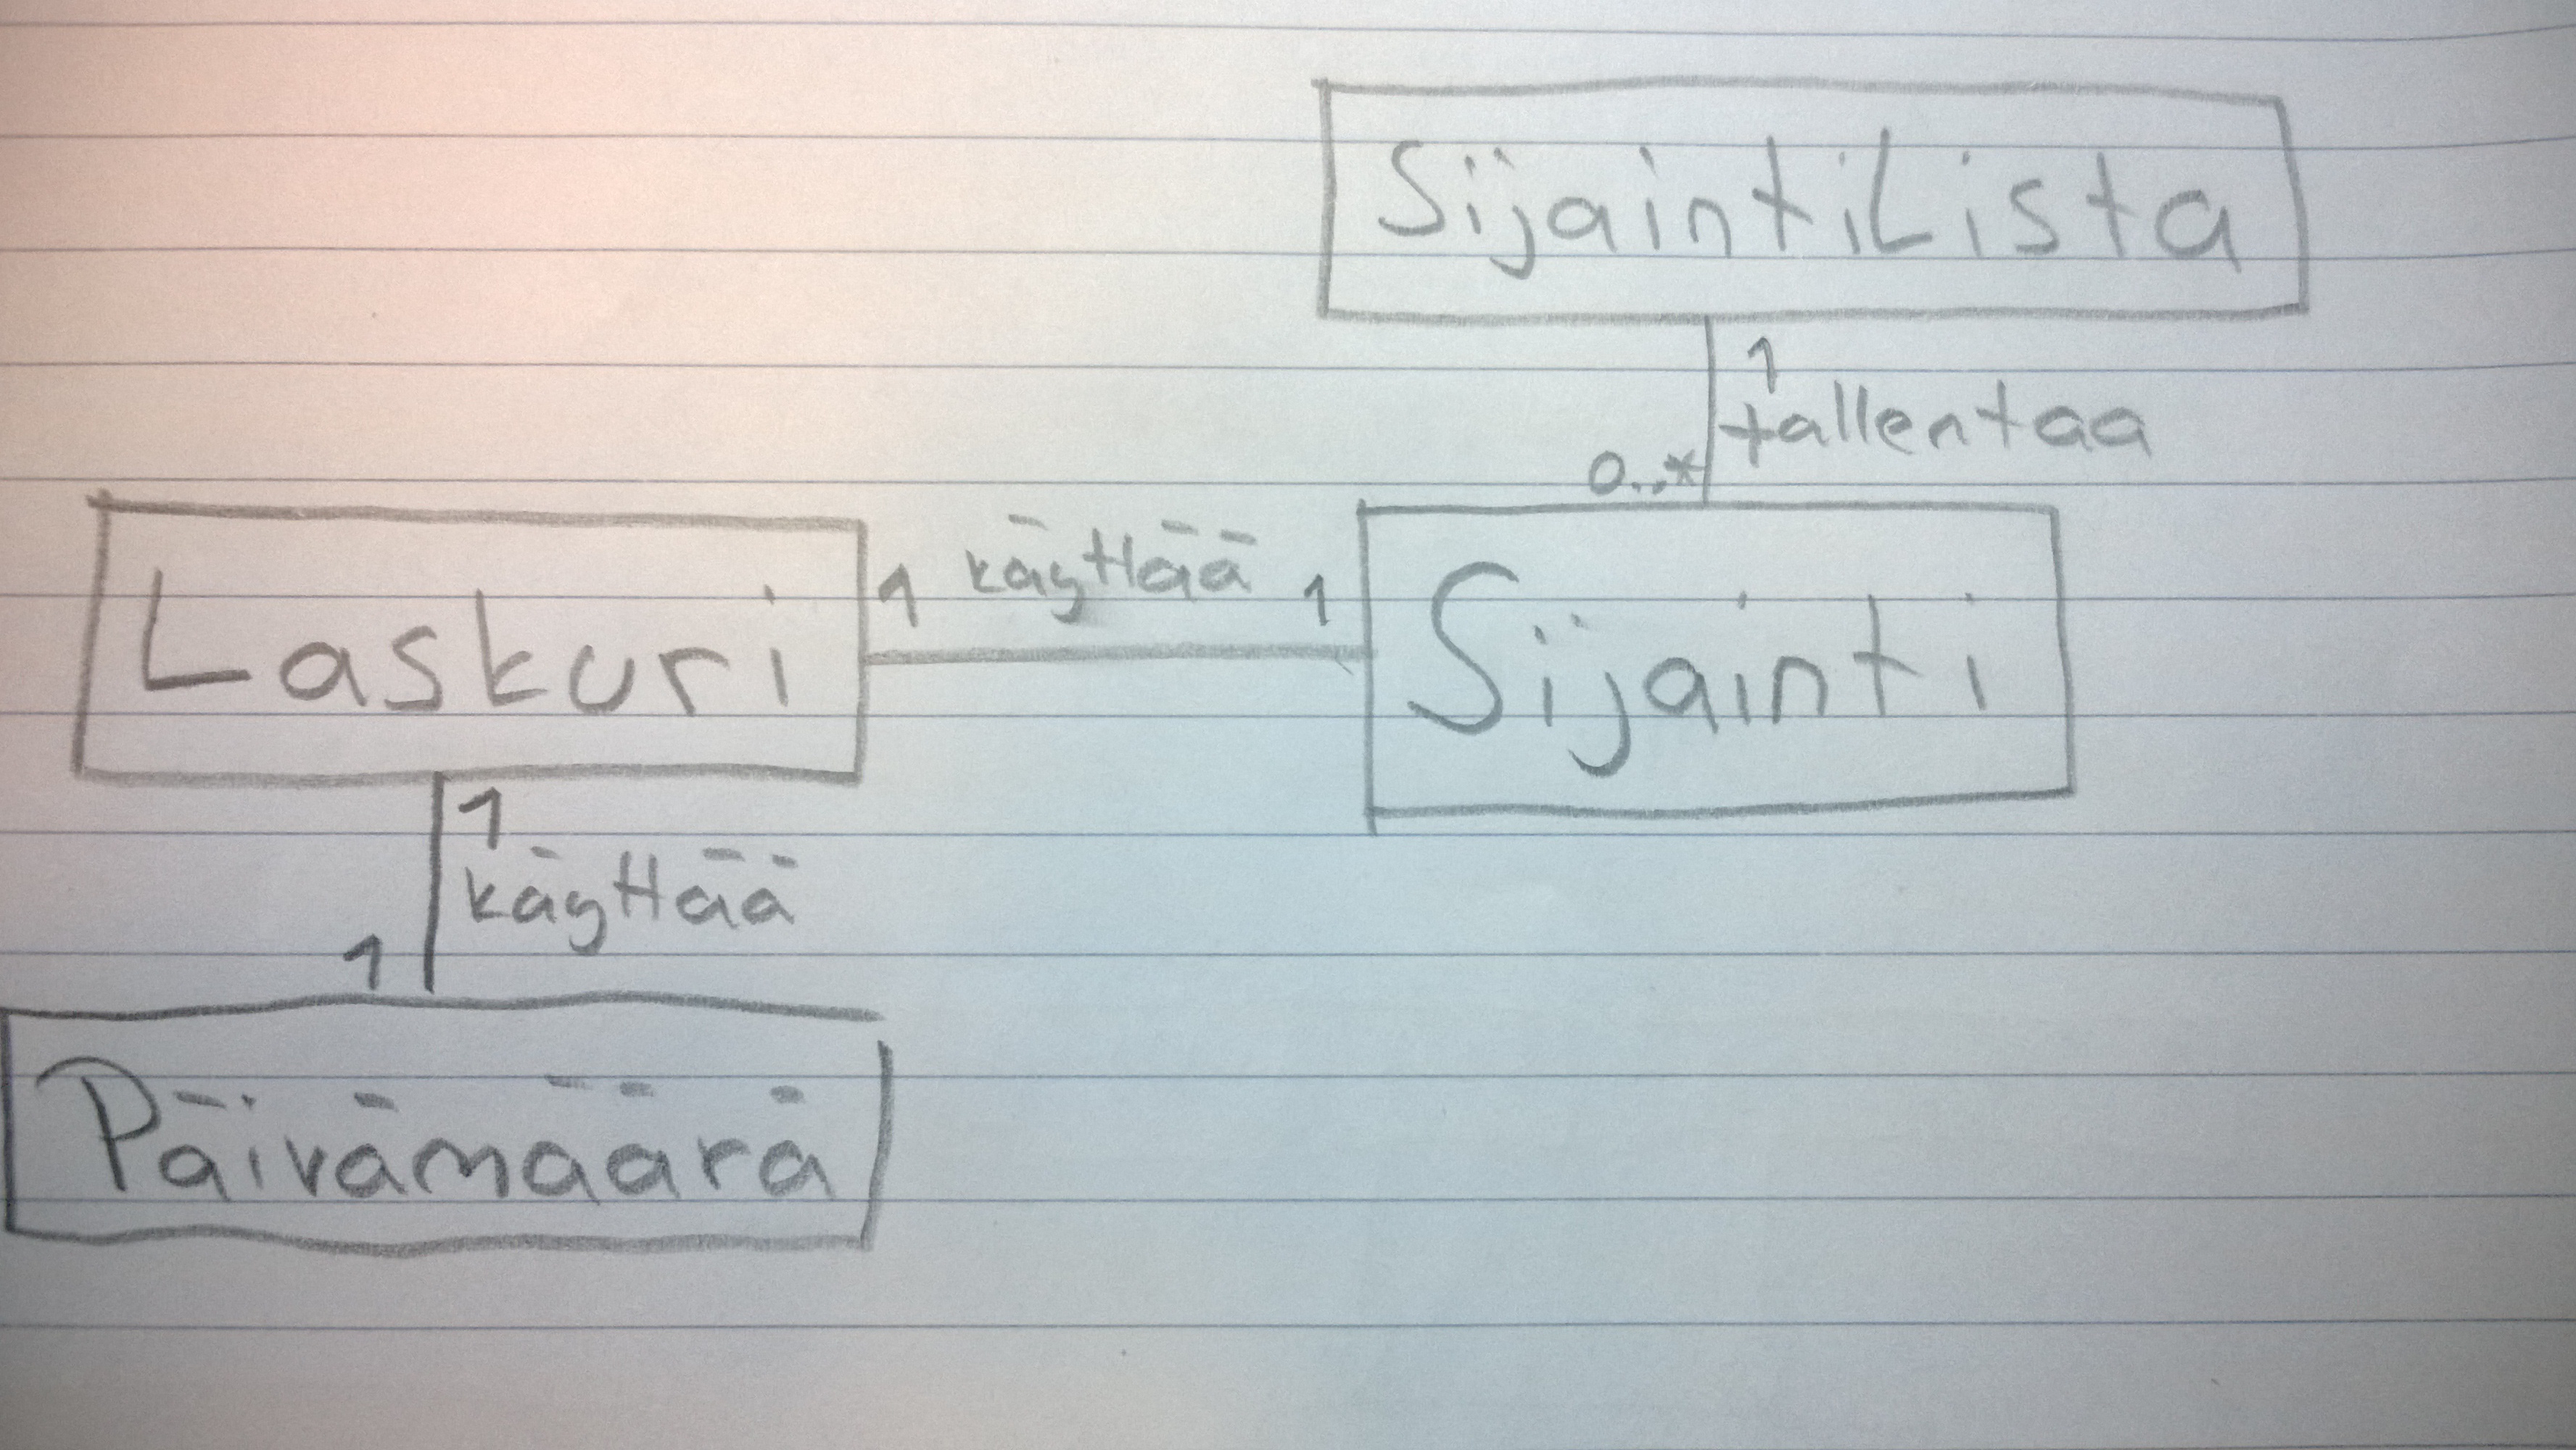 SijaintiLista
1
tallentaa
0..*
Laskuri
1 käyttää 1
Sijainti
1
käyttää
1
Päivämäärä